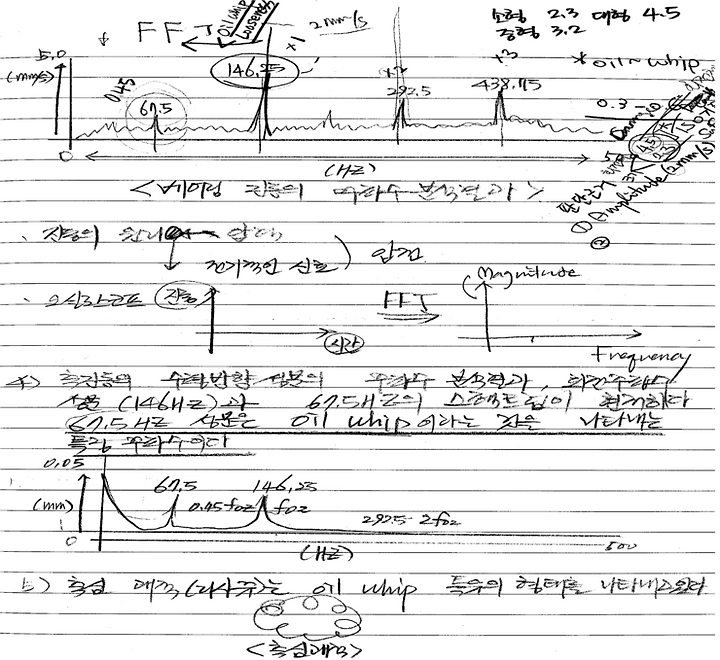 소형 2.3 대형 4.5
중형 3.2
FFT
Oil whip
Looseness
2mm/s
×1
×2
×3
* oil~whip
5.0
(mm/s)
0.45
67.5
146.25
292.5
438.75
0.3
0
(HZ)
<베어링 진동의 주파수 분석결과>
Damage
① Amplitude (2mm/s)
②
진동의 원리
전기적인 신호
오실라코프 진동
시간
FFT
Magnitude
Frequency
a) 축진동의 수평방향 성분의 주파수 분석결과, 회전주파수
성분 (146HZ)과 67.5HZ의 스펙트럼이 현저하다
67.5HZ 성분은 oil whip이라는 것을 나타내는
특징 주파수이다
0.05
(mm)
67.5
146.25
0.45foz
foz
292.5 2foz
0
(HZ)
500
b) 축심 궤적(리사쥬)는 oil whip 특유의 형태를 나타내고있다
<축심궤적>